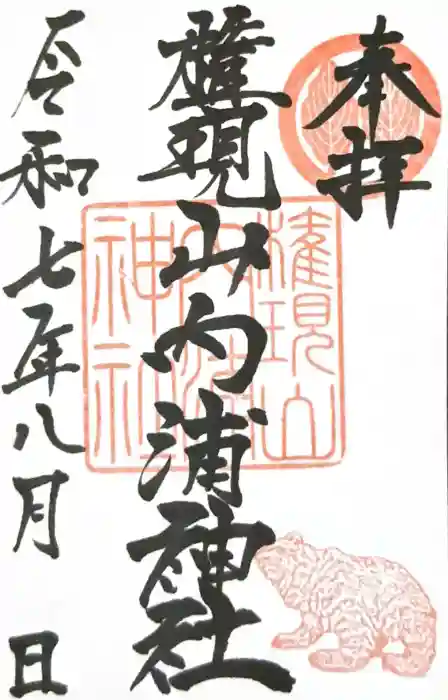 奉拝
権現山内浦神社
権現山
内浦
神社
令和七年八月 日